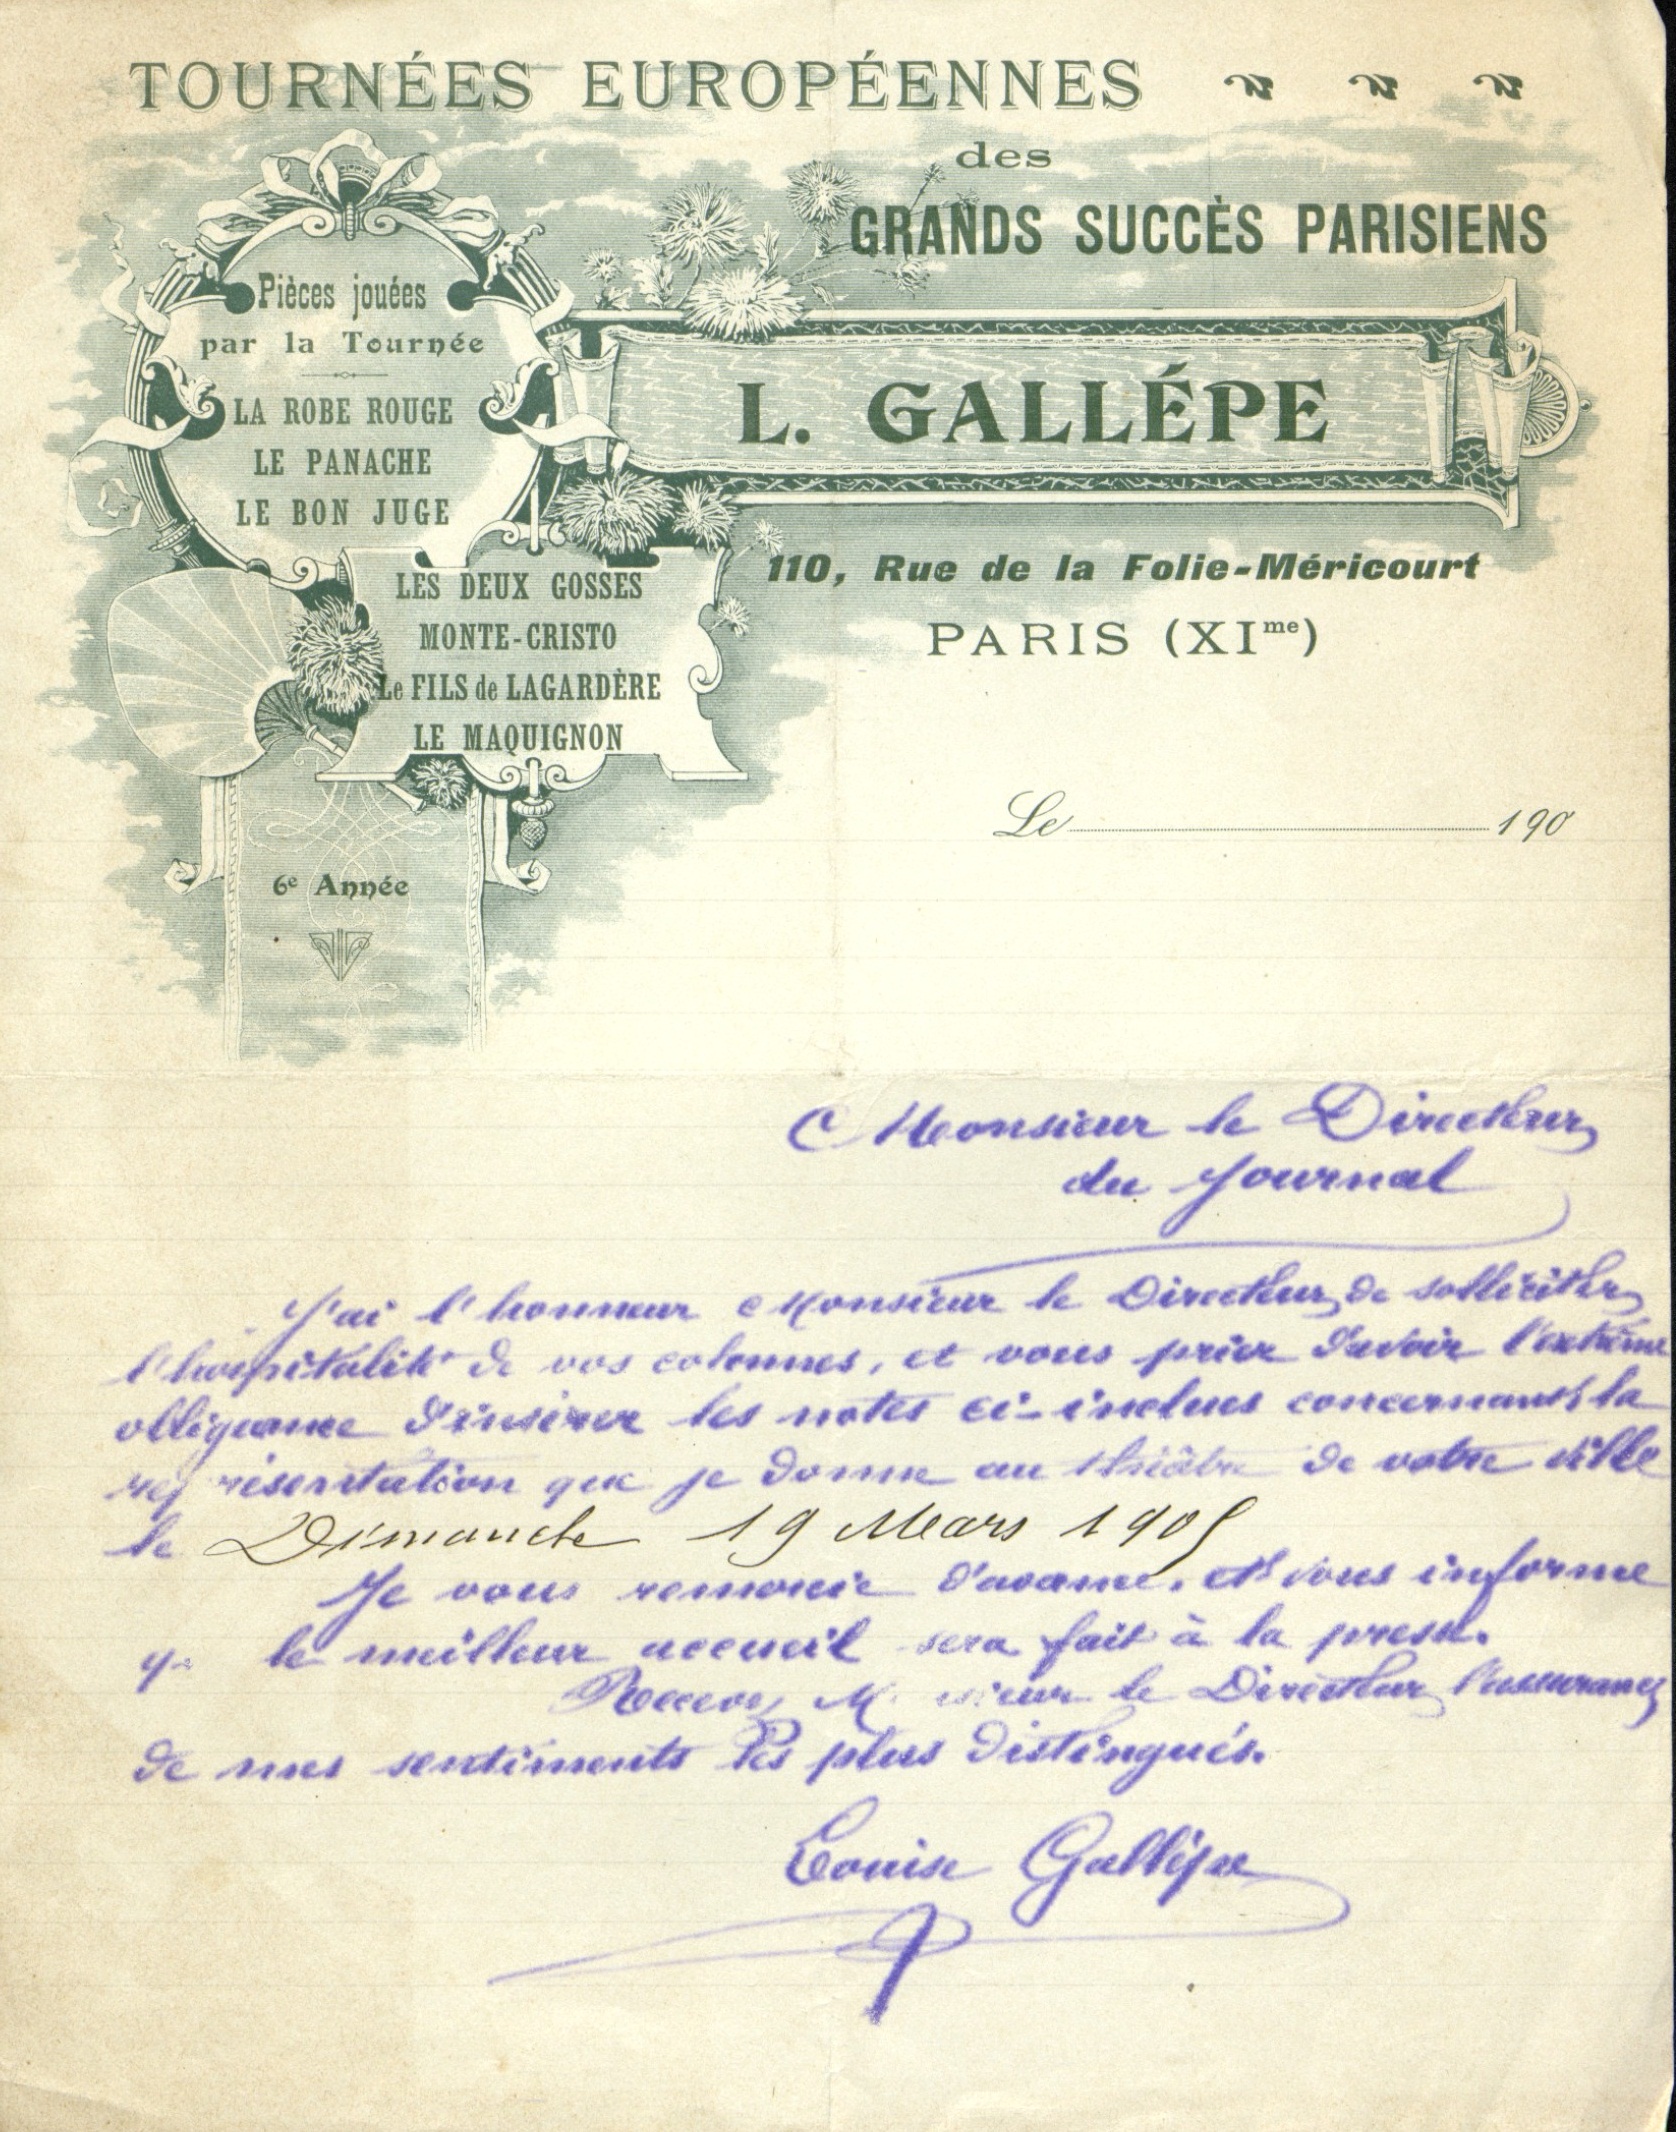 TOURNÉES EUROPÉENNES
des
GRANDS SUCCÈS PARISIENS
Pièces jouées
par la Tournée
LA ROBE ROUGE
LE PANACHE
LE BON JUGE
LES DEUX GOSSES
MONTE-CRISTO
Le FILS de LAGARDÈRE
LE MAQUIGNON
6e Année
L. GALLÉPE
110, Rue de la Folie-Méricourt
PARIS (XIme)
Le 190
Monsieur le Directeur
du Journal
J'ai l'honneur Monsieur le Directeur, de solliciter
l'hospitalité de vos colonnes, et vous prier d'avoir l'extrême
obligeance d'insérer les notes ci-inclues concernant la
représentation que je donne au théâtre de votre ville
le Dimanche 19 Mars 1905
Je vous remercie d'avance, et vous informe
q le meilleur accueil sera fait à la presse.
Recevez Monsieur le Directeur l'assurance
de mes sentiments les plus distingués.
Louise Gallépe